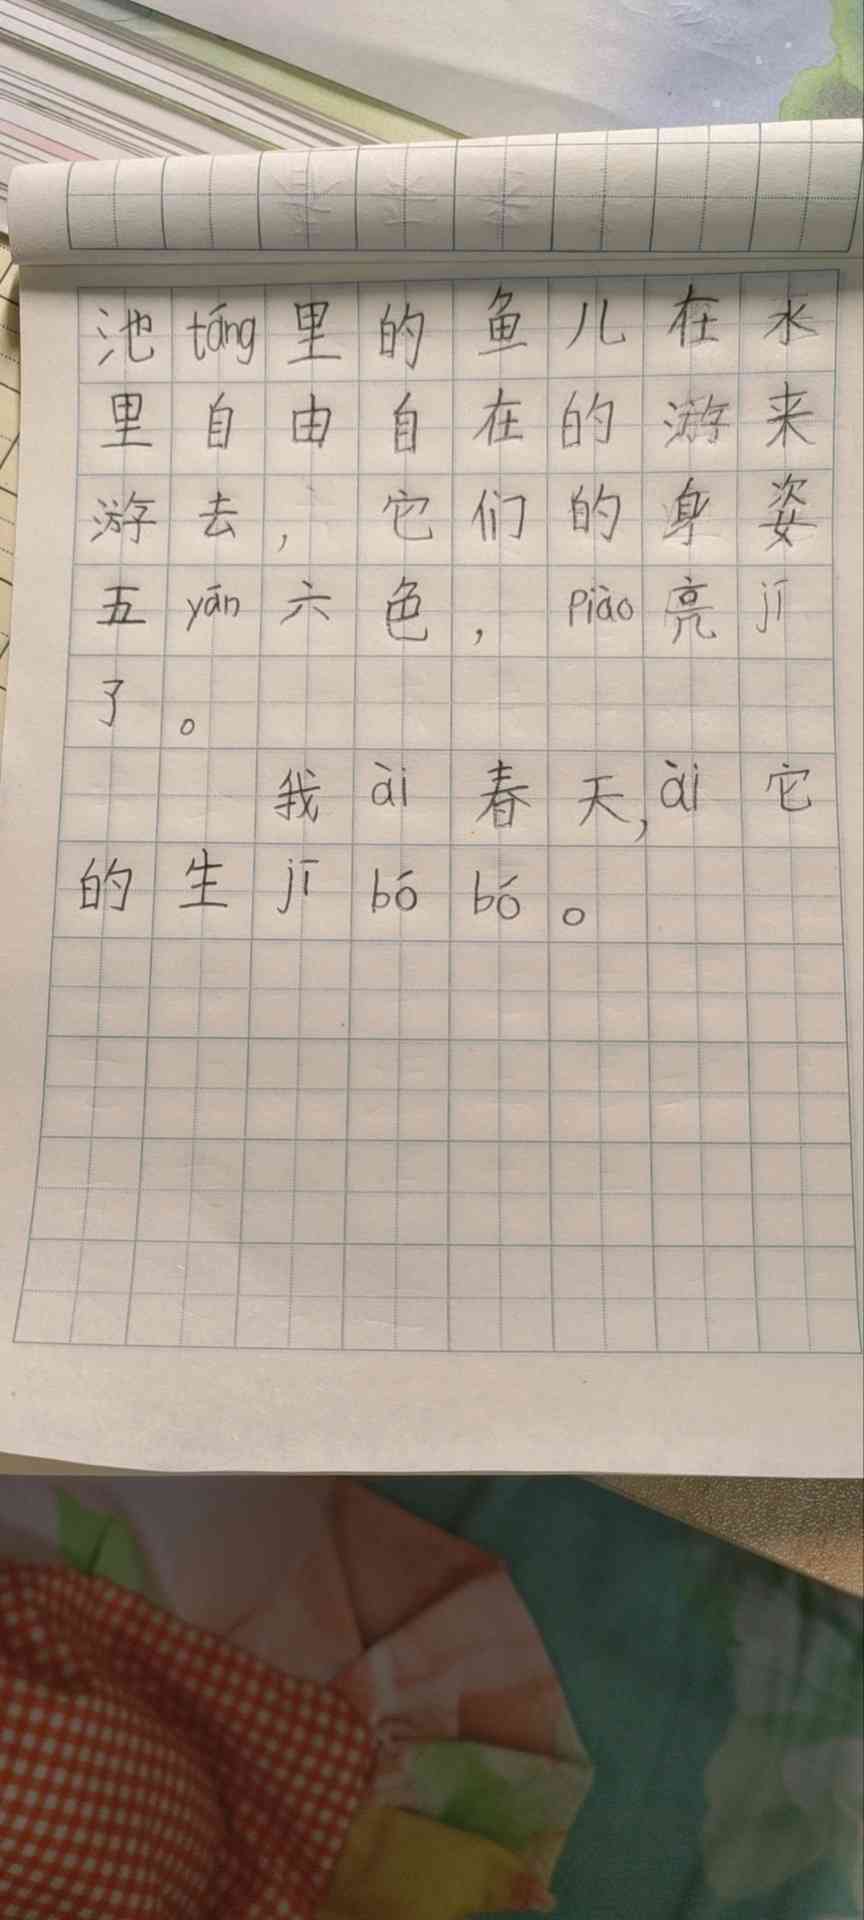 池táng里的鱼儿在水
里自由自在的游来
游去，它们的身姿
五yán六色，piào亮jī
了。
我ài春天，ài它
的生jī bó bó。